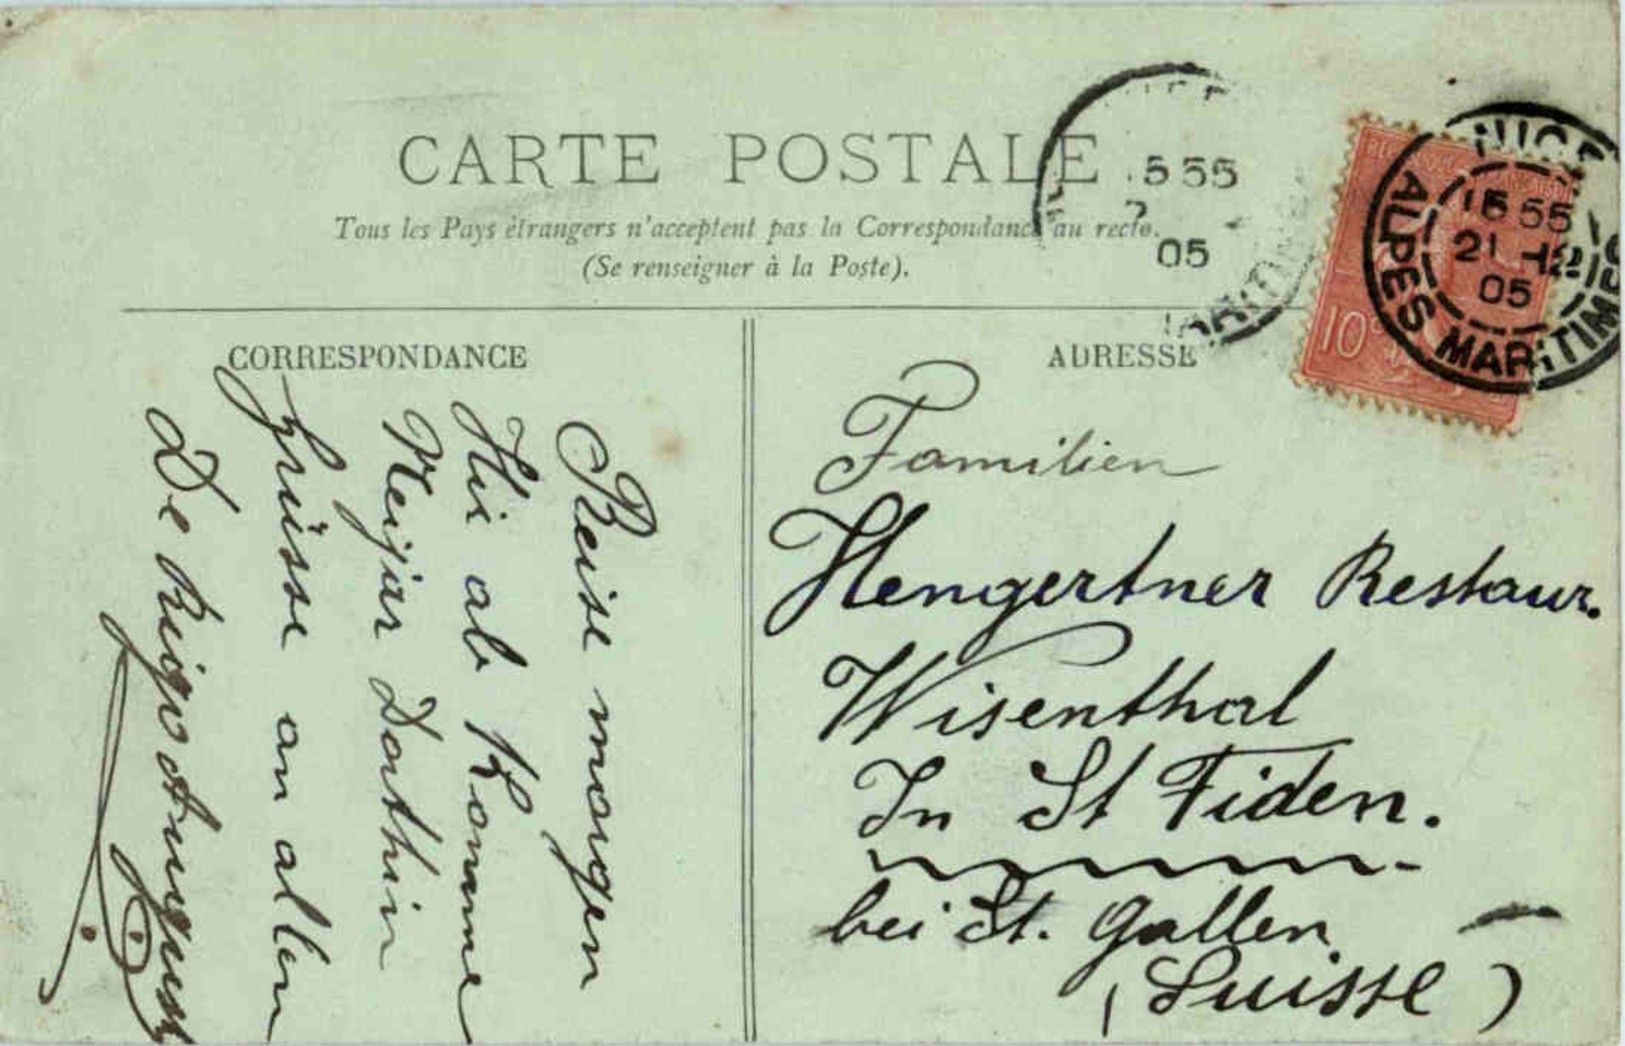 CARTE POSTALE
Tous les Pays étrangers n'acceptent pas la Correspondance au recto.
(Se renseigner à la Poste).
5 55
05
NICE
15 55
21 12
05
ALPES MARITIMES
10c
CORRESPONDANCE
Reise morgen
Hir ab Komme
Neijar Dorthin
Grüsse an allen
De Rigo August
ADRESSE
Familien
Hengertner Restaur.
Wisenthal
In St Fiden.
bei St. Gallen
(Suisse)